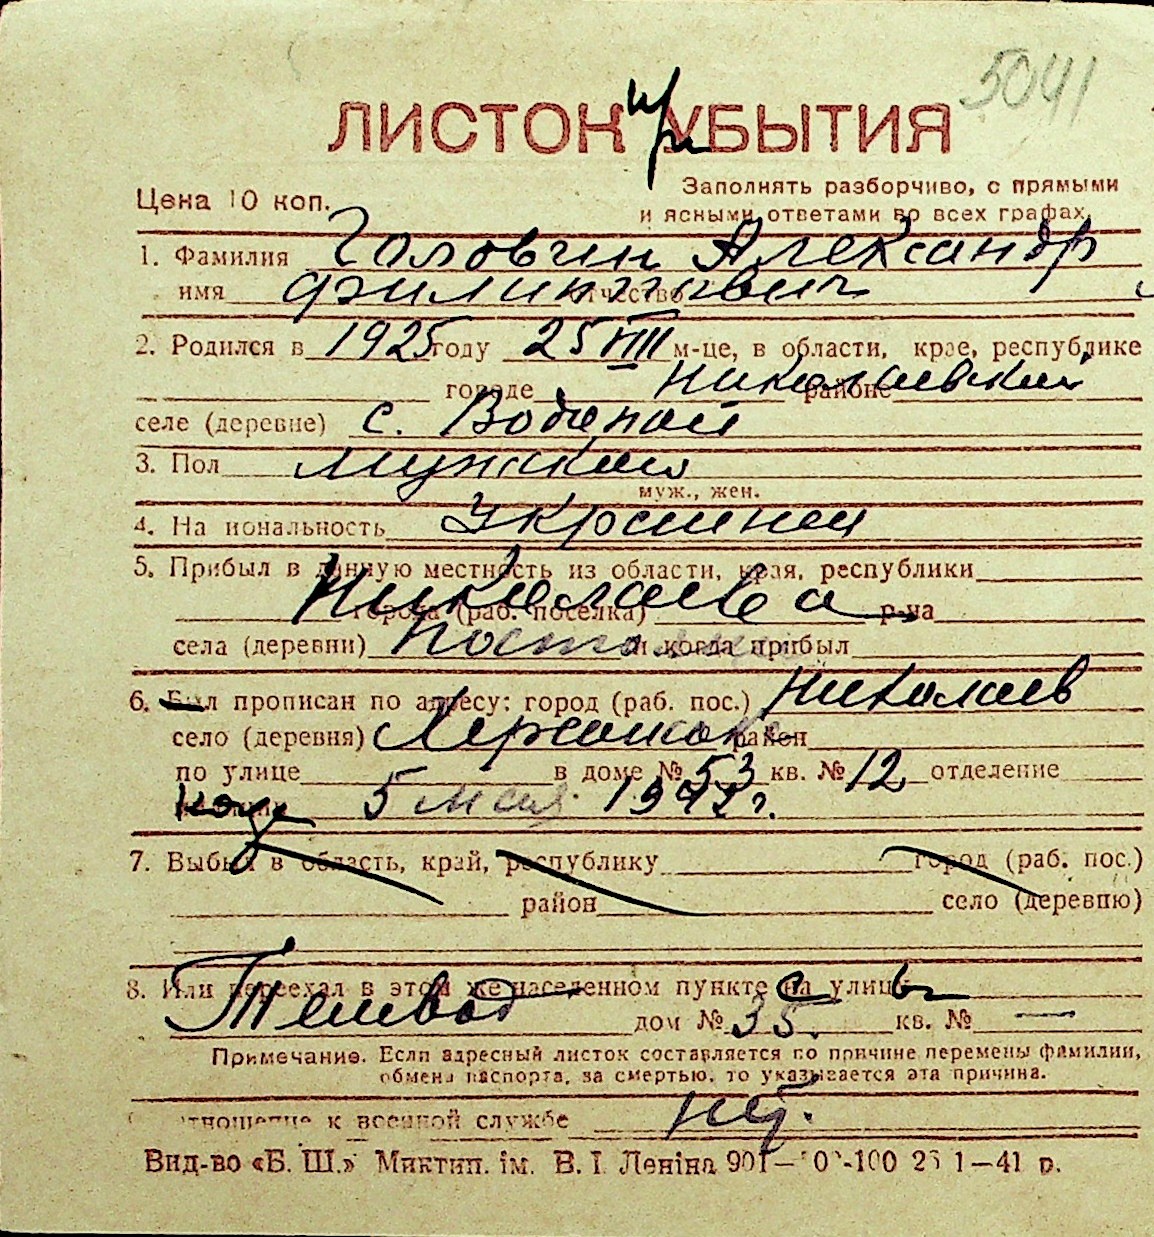 5041
ЛИСТОК при УБЫТИЯ
Цена 10 коп.
Заполнять разборчиво, с прямыми
и ясными ответами во всех графах.
1. Фамилия Головчин Александр
имя Филиппович отчество
2. Родился в 1925 году 25 VIII м-це, в области, крае, республике
городе Николаевский районе
селе (деревне) с. Водопой
3. Пол Мужской
муж., жен.
4. Национальность Украинец
5. Прибыл в данную местность из области, края, республики
Николаева города (раб. поселка) р-на
села (деревни) и когда прибыл
6. Был прописан по адресу: город (раб. пос.) Николаев
село (деревня) район
по улице в доме № 53 кв. № 12 отделение
5 мая 1942 г.
7. Выбыл в область, край, республику город (раб. пос.)
район село (деревню)
8. Или переехал в этом же населенном пункте с улицы
дом № 35. кв. № —
Примечание. Если адресный листок составляется по причине перемены фамилии,
обмена паспорта, за смертью, то указывается эта причина.
Отношение к военной службе нет.
Вид-во «Б. Ш.» Миктип. ім. В. І. Леніна 901 1—41 р.